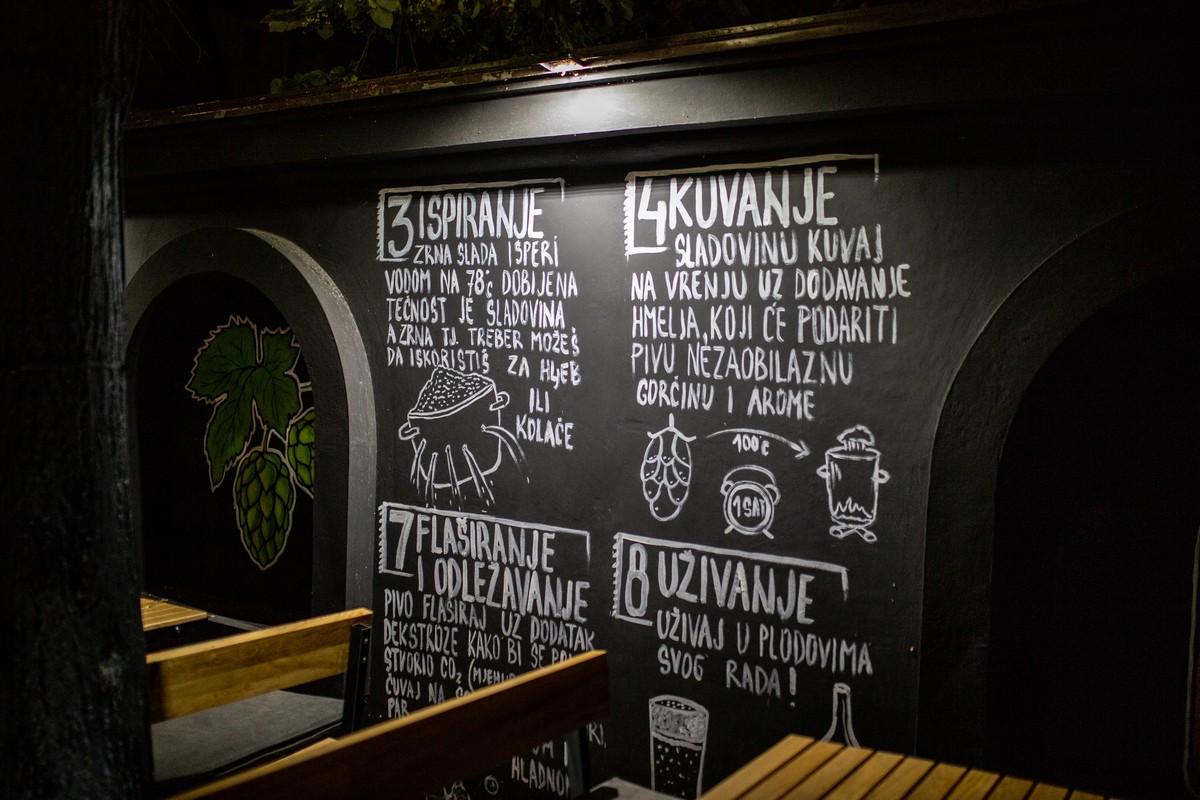 3 ISPIRANJE
ZRNA SLADA ISPERI
VODOM NA 78°C DOBIJENA
TEČNOST JE SLADOVINA
A ZRNA TJ. TREBER MOŽEŠ
DA ISKORISTIŠ ZA HLJEB
ILI
KOLAČE
4 KUVANJE
SLADOVINU KUVAJ
NA VRENJU UZ DODAVANJE
HMELJA, KOJI ĆE PODARITI
PIVU NEZAOBILAZNU
GORČINU I AROME
100°C
1 SAT
7 FLAŠIRANJE
I ODLEŽAVANJE
PIVO FLAŠIRAJ UZ DODATAK
DEKSTROZE KAKO BI SE
STVORIO CO₂
ČUVAJ NA
PAR
HLADNOM
8 UŽIVANJE
UŽIVAJ U PLODOVIMA
SVOG RADA!